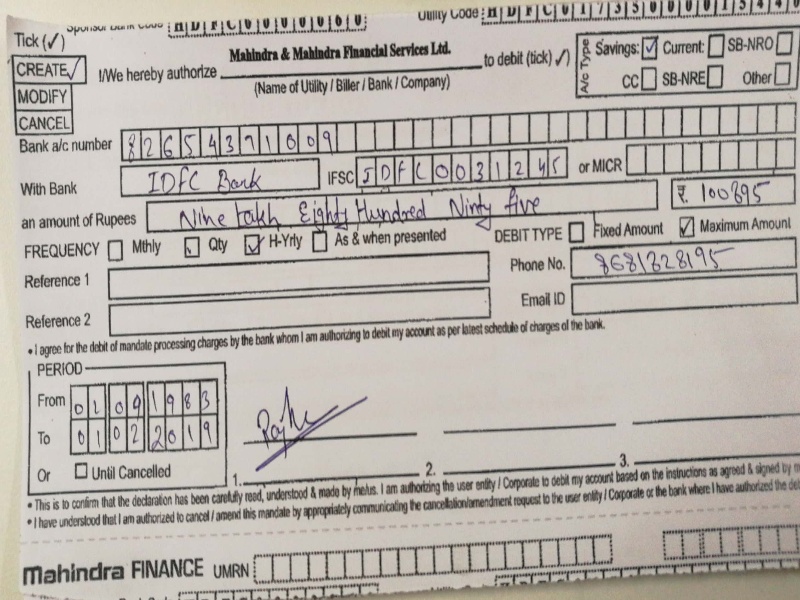 Sponsor Bank Code HDFC0000060 Utility Code: HDFC01735000015440
Tick (✓)
CREATE ✓ I/We hereby authorize Mahindra & Mahindra Financial Services Ltd. to debit (tick) ✓) A/c Type Savings: ✓ Current: SB-NRO
MODIFY (Name of Utility / Biller / Bank / Company) CC SB-NRE Other
CANCEL
Bank a/c number 82654371009
With Bank IDFC Bank IFSC IDFC0031245 or MICR
an amount of Rupees Nine Lakh Eighty Hundred Ninty five ₹. 100895
FREQUENCY Mthly Qty ✓ H-Yrly As & when presented DEBIT TYPE Fixed Amount ✓ Maximum Amount
Reference 1 Phone No. 8681328195
Reference 2 Email ID
• I agree for the debit of mandate processing charges by the bank whom I am authorizing to debit my account as per latest schedule of charges of the bank.
PERIOD
From 01091983
To 01022019
Or Until Cancelled 1. 2. 3.
• This is to confirm that the declaration has been carefully read, understood & made by me/us. I am authorizing the user entity / Corporate to debit my account based on the instructions as agreed & signed by m
• I have understood that I am authorized to cancel / amend this mandate by appropriately communicating the cancellation/amendment request to the user entity / Corporate or the bank where I have authorized the deb
Mahindra FINANCE UMRN